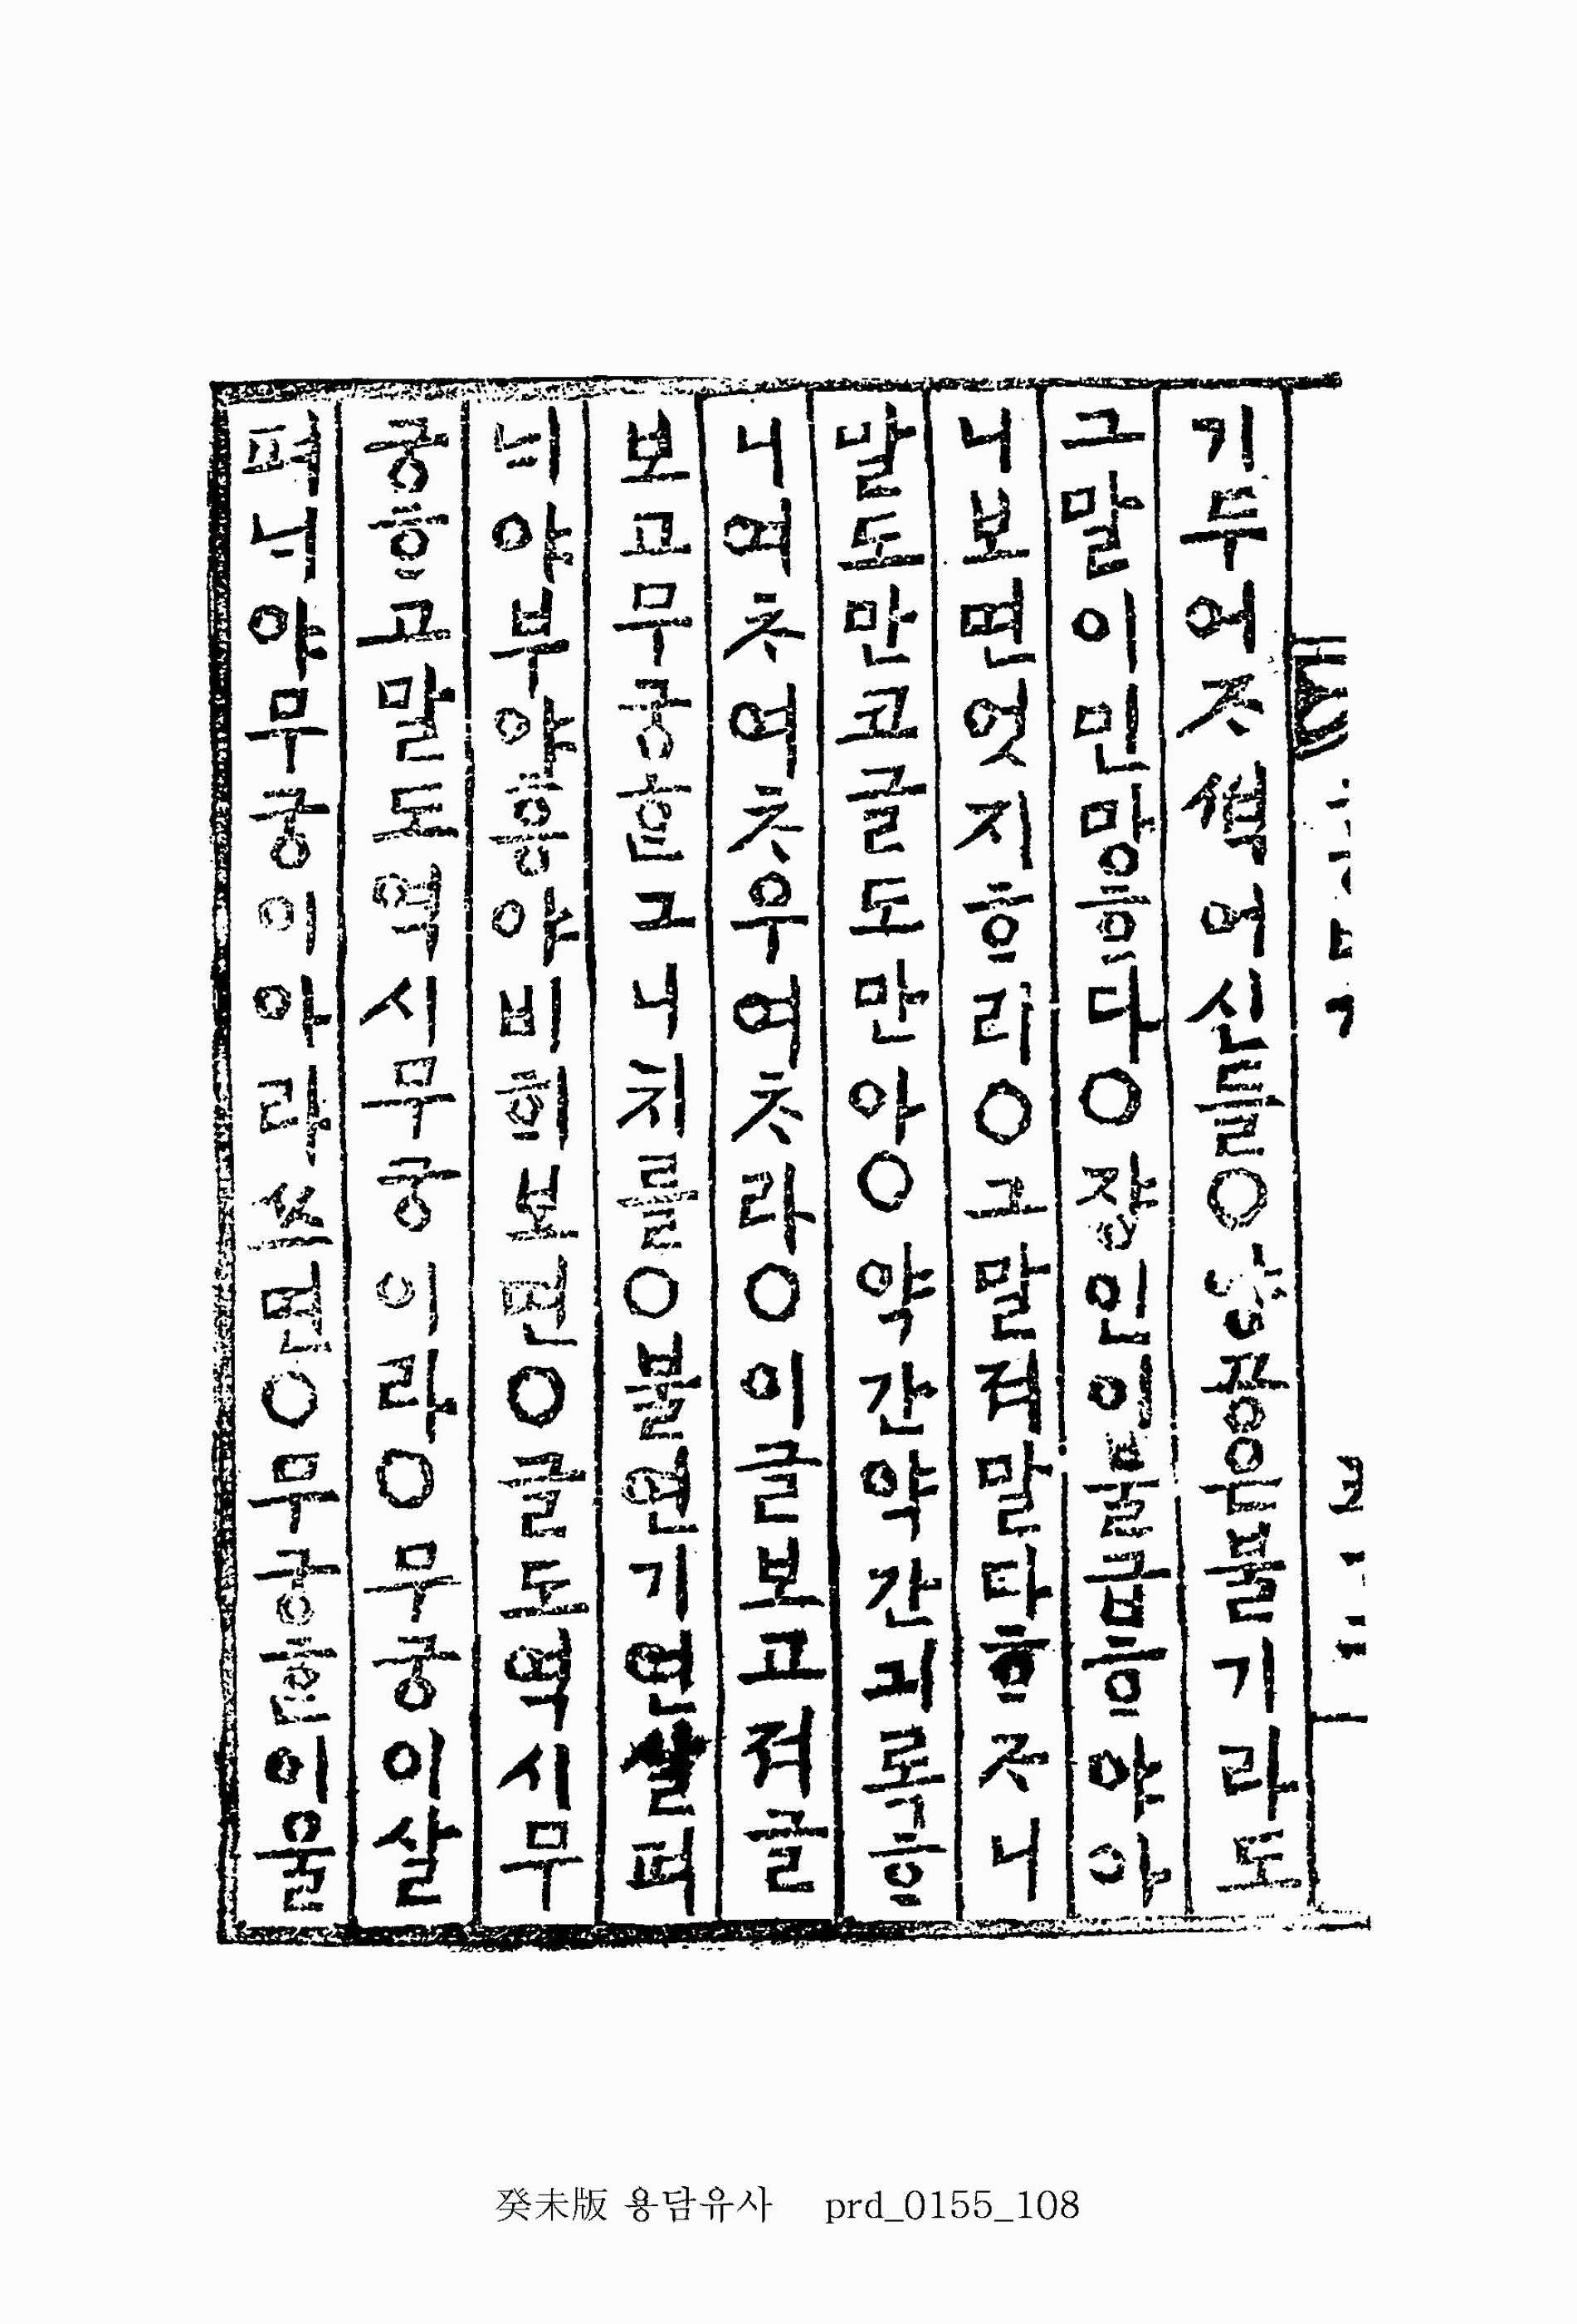 기두어ᄌᆞ썩어신들○양공은불기라도
그말이민망ᄒᆞ다○쟝인이불급ᄒᆞ야아
니보면엇지ᄒᆞ리○그말져말다ᄒᆞᄌᆞ니
말도만코글도만아○약간약간긔록ᄒᆞ
니여ᄎᆞ여ᄎᆞ우여ᄎᆞ라○이글보고져글
보고무궁ᄒᆞᆫ그니치를○불연기연살펴
ᄂᆡ야부야흥야비ᄒᆡ보면○글도역시무
궁ᄒᆞ고말도역시무궁이라○무궁이살
펴ᄂᆡ야무궁이아라쓰면○무궁ᄒᆞᆫ이울
癸未版 용담유사 prd_0155_108